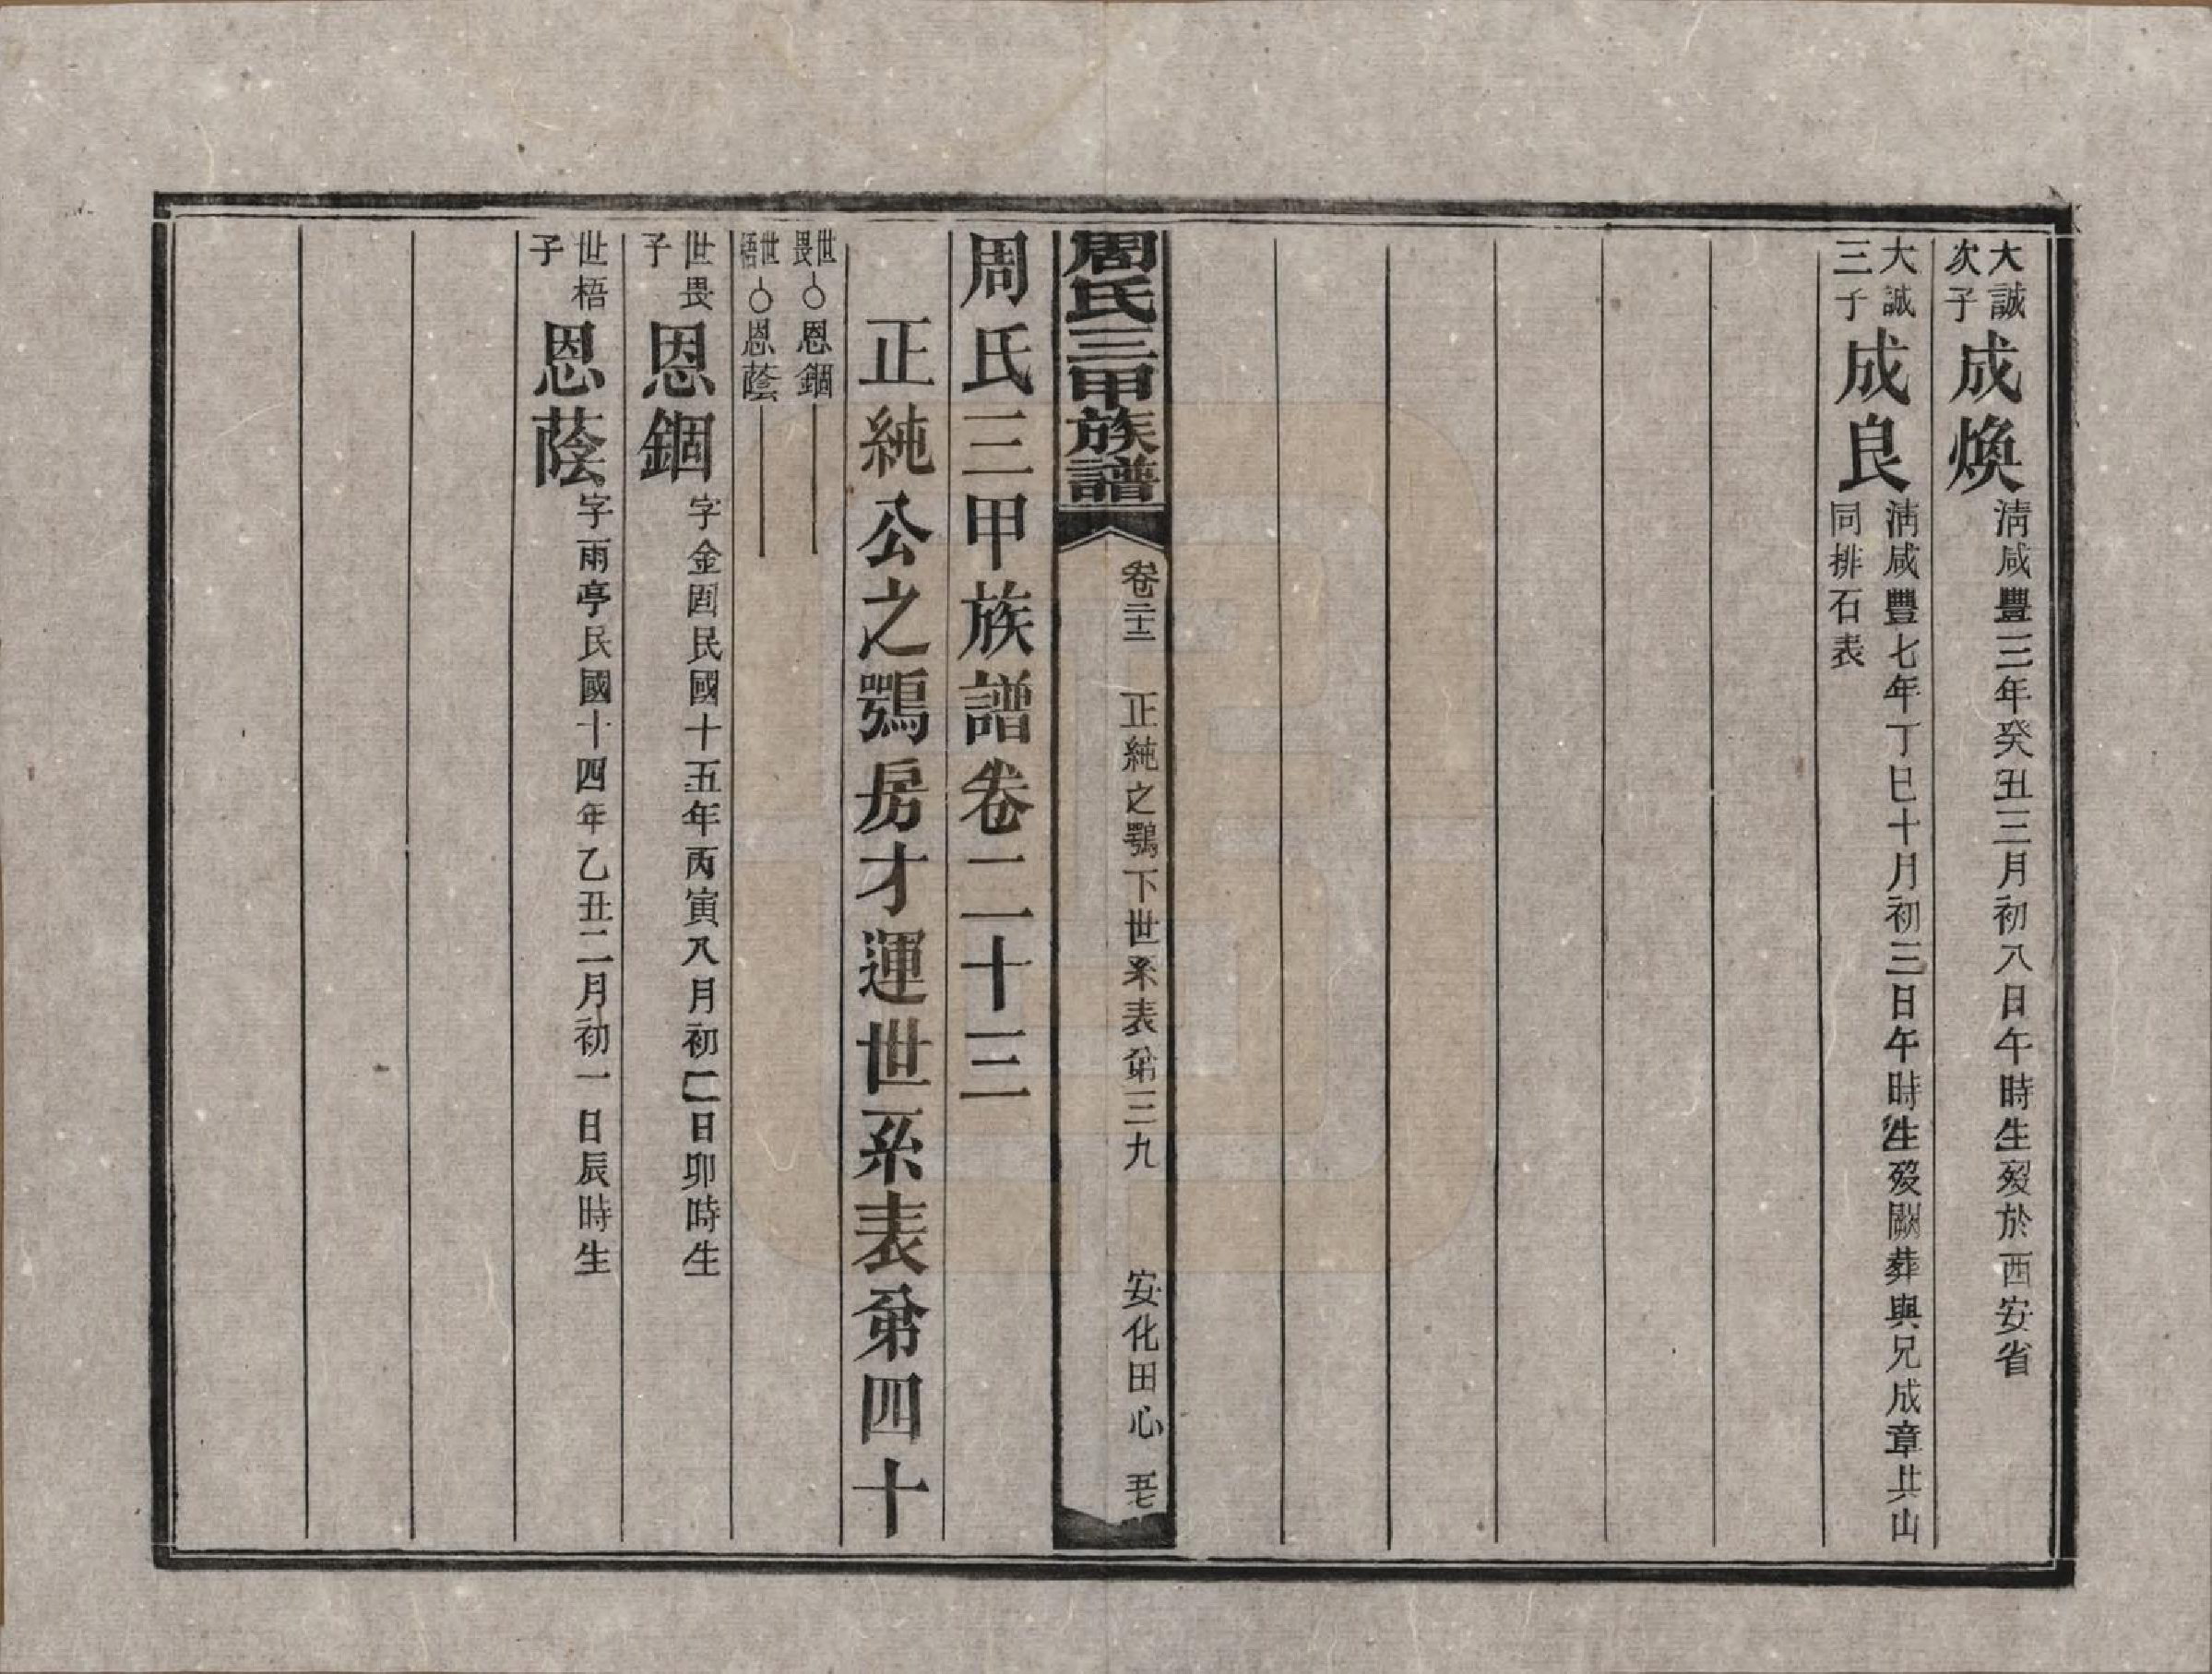 大誠
次子
成煥
淸咸豐三年癸丑三月初八日午時生歿於西安省
大誠
三子
成良
淸咸豐七年丁巳十月初三日午時生歿闕葬與兄成章共山
同排石表
周氏三甲族譜
卷二十三 正純之鶚下世系表第三九 安化田心
周氏三甲族譜卷二十三
正純公之鶚房才運世系表第四十
世畏○恩錮
世梧○恩蔭
世畏
子
恩錮
字金固民國十五年丙寅八月初二日卯時生
世梧
子
恩蔭
字雨亭民國十四年乙丑二月初一日辰時生